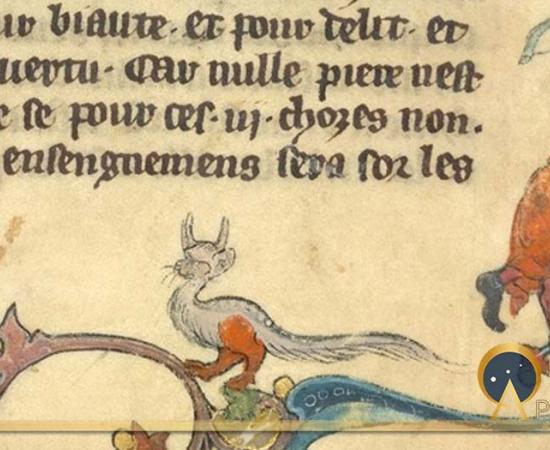 ur biaute. et pour delit. et
uertu. Car nulle piere nest
e se pour ces. iij. chozes non.
ensengnemens sera sor les